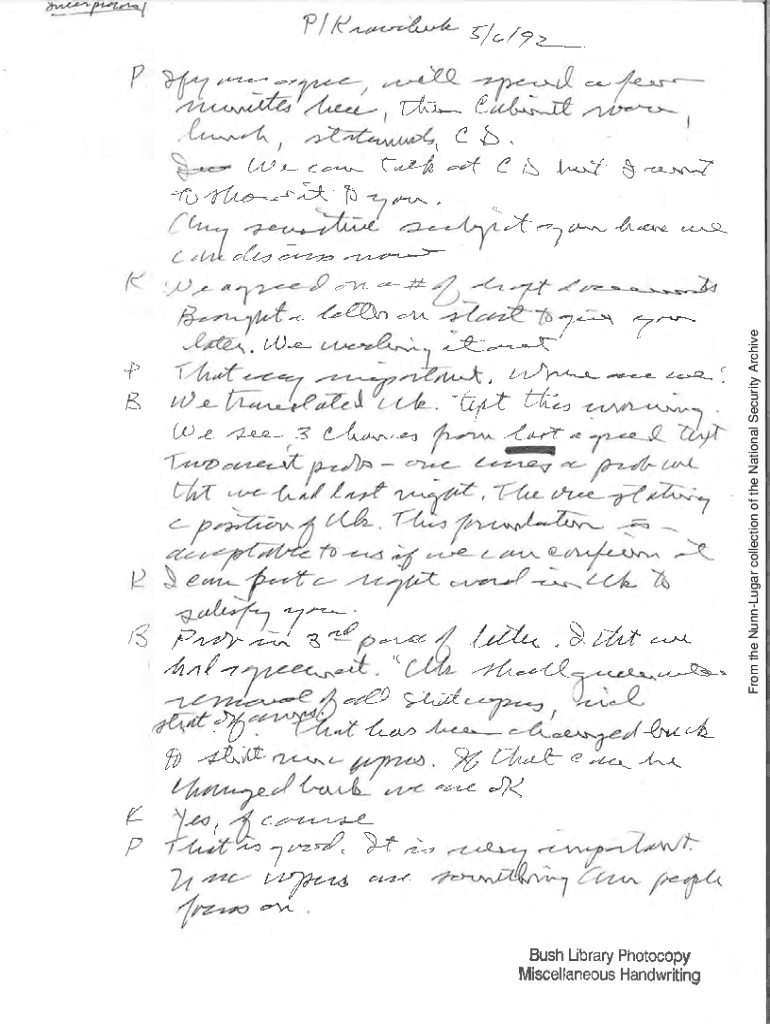 P/Kravchuk 5/6/92
P If you agree, will spend a few
minutes here, then Cabinet room,
lunch, statements, C D.
We can talk at C D but I want
to show it to you.
Any sensitive subject you have we
can discuss now
K We agreed on a # of draft documents
Brought a letter on start to give you
later. We working it out
P That very important. Where are we?
B We translated Uk. text this morning.
We see 3 changes from last agreed text
Two aren't probs – one a prob we
tht we had last night. The one stating
a position of Uk. This formulation is
acceptable to us if we can confirm it
K I can put a right word in Uk to
satisfy you.
B Prob in 3rd para of letter. I tht we
had agreement. "Uk shall guarantee
removal of all weapons, incl
strat off arms." That has been changed back
to strat nuc wpns. If that can be
changed back we are OK
K Yes, of course
P That is good. It is very important.
Nuc wpns are something Am people
focus on.
From the Nunn-Lugar collection of the National Security Archive
Bush Library Photocopy
Miscellaneous Handwriting